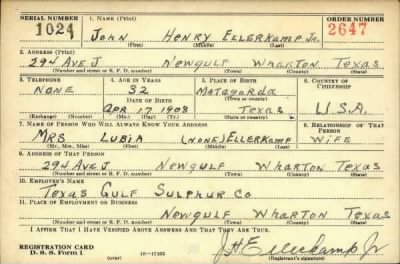 SERIAL NUMBER 1. NAME (Print) ORDER NUMBER
1024 JOHN HENRY ELLERKAMP JR. 2647
(First) (Middle) (Last)
2. ADDRESS (Print)
294 AVE J NEWGULF WHARTON TEXAS
(Number and street or R. F. D. number) (Town) (County) (State)
3. TELEPHONE 4. AGE IN YEARS 5. PLACE OF BIRTH 6. COUNTRY OF CITIZENSHIP
NONE 32 MATAGORDA
DATE OF BIRTH (Town or county)
APR 17 1908 TEXAS U.S.A.
(Exchange) (Number) (Mo.) (Day) (Yr.) (State or country)
7. NAME OF PERSON WHO WILL ALWAYS KNOW YOUR ADDRESS 8. RELATIONSHIP OF THAT PERSON
MRS LUBIA (NONE) ELLERKAMP WIFE
(Mr., Mrs., Miss) (First) (Middle) (Last)
9. ADDRESS OF THAT PERSON
294 AVE J NEWGULF WHARTON TEXAS
(Number and street or R. F. D. number) (Town) (County) (State)
10. EMPLOYER'S NAME
TEXAS GULF SULPHUR CO
11. PLACE OF EMPLOYMENT OR BUSINESS
NEWGULF WHARTON TEXAS
(Number and street or R. F. D. number) (Town) (County) (State)
I AFFIRM THAT I HAVE VERIFIED ABOVE ANSWERS AND THAT THEY ARE TRUE.
REGISTRATION CARD
D. S. S. Form 1 (over) J H Ellerkamp Jr
(Registrant's signature)